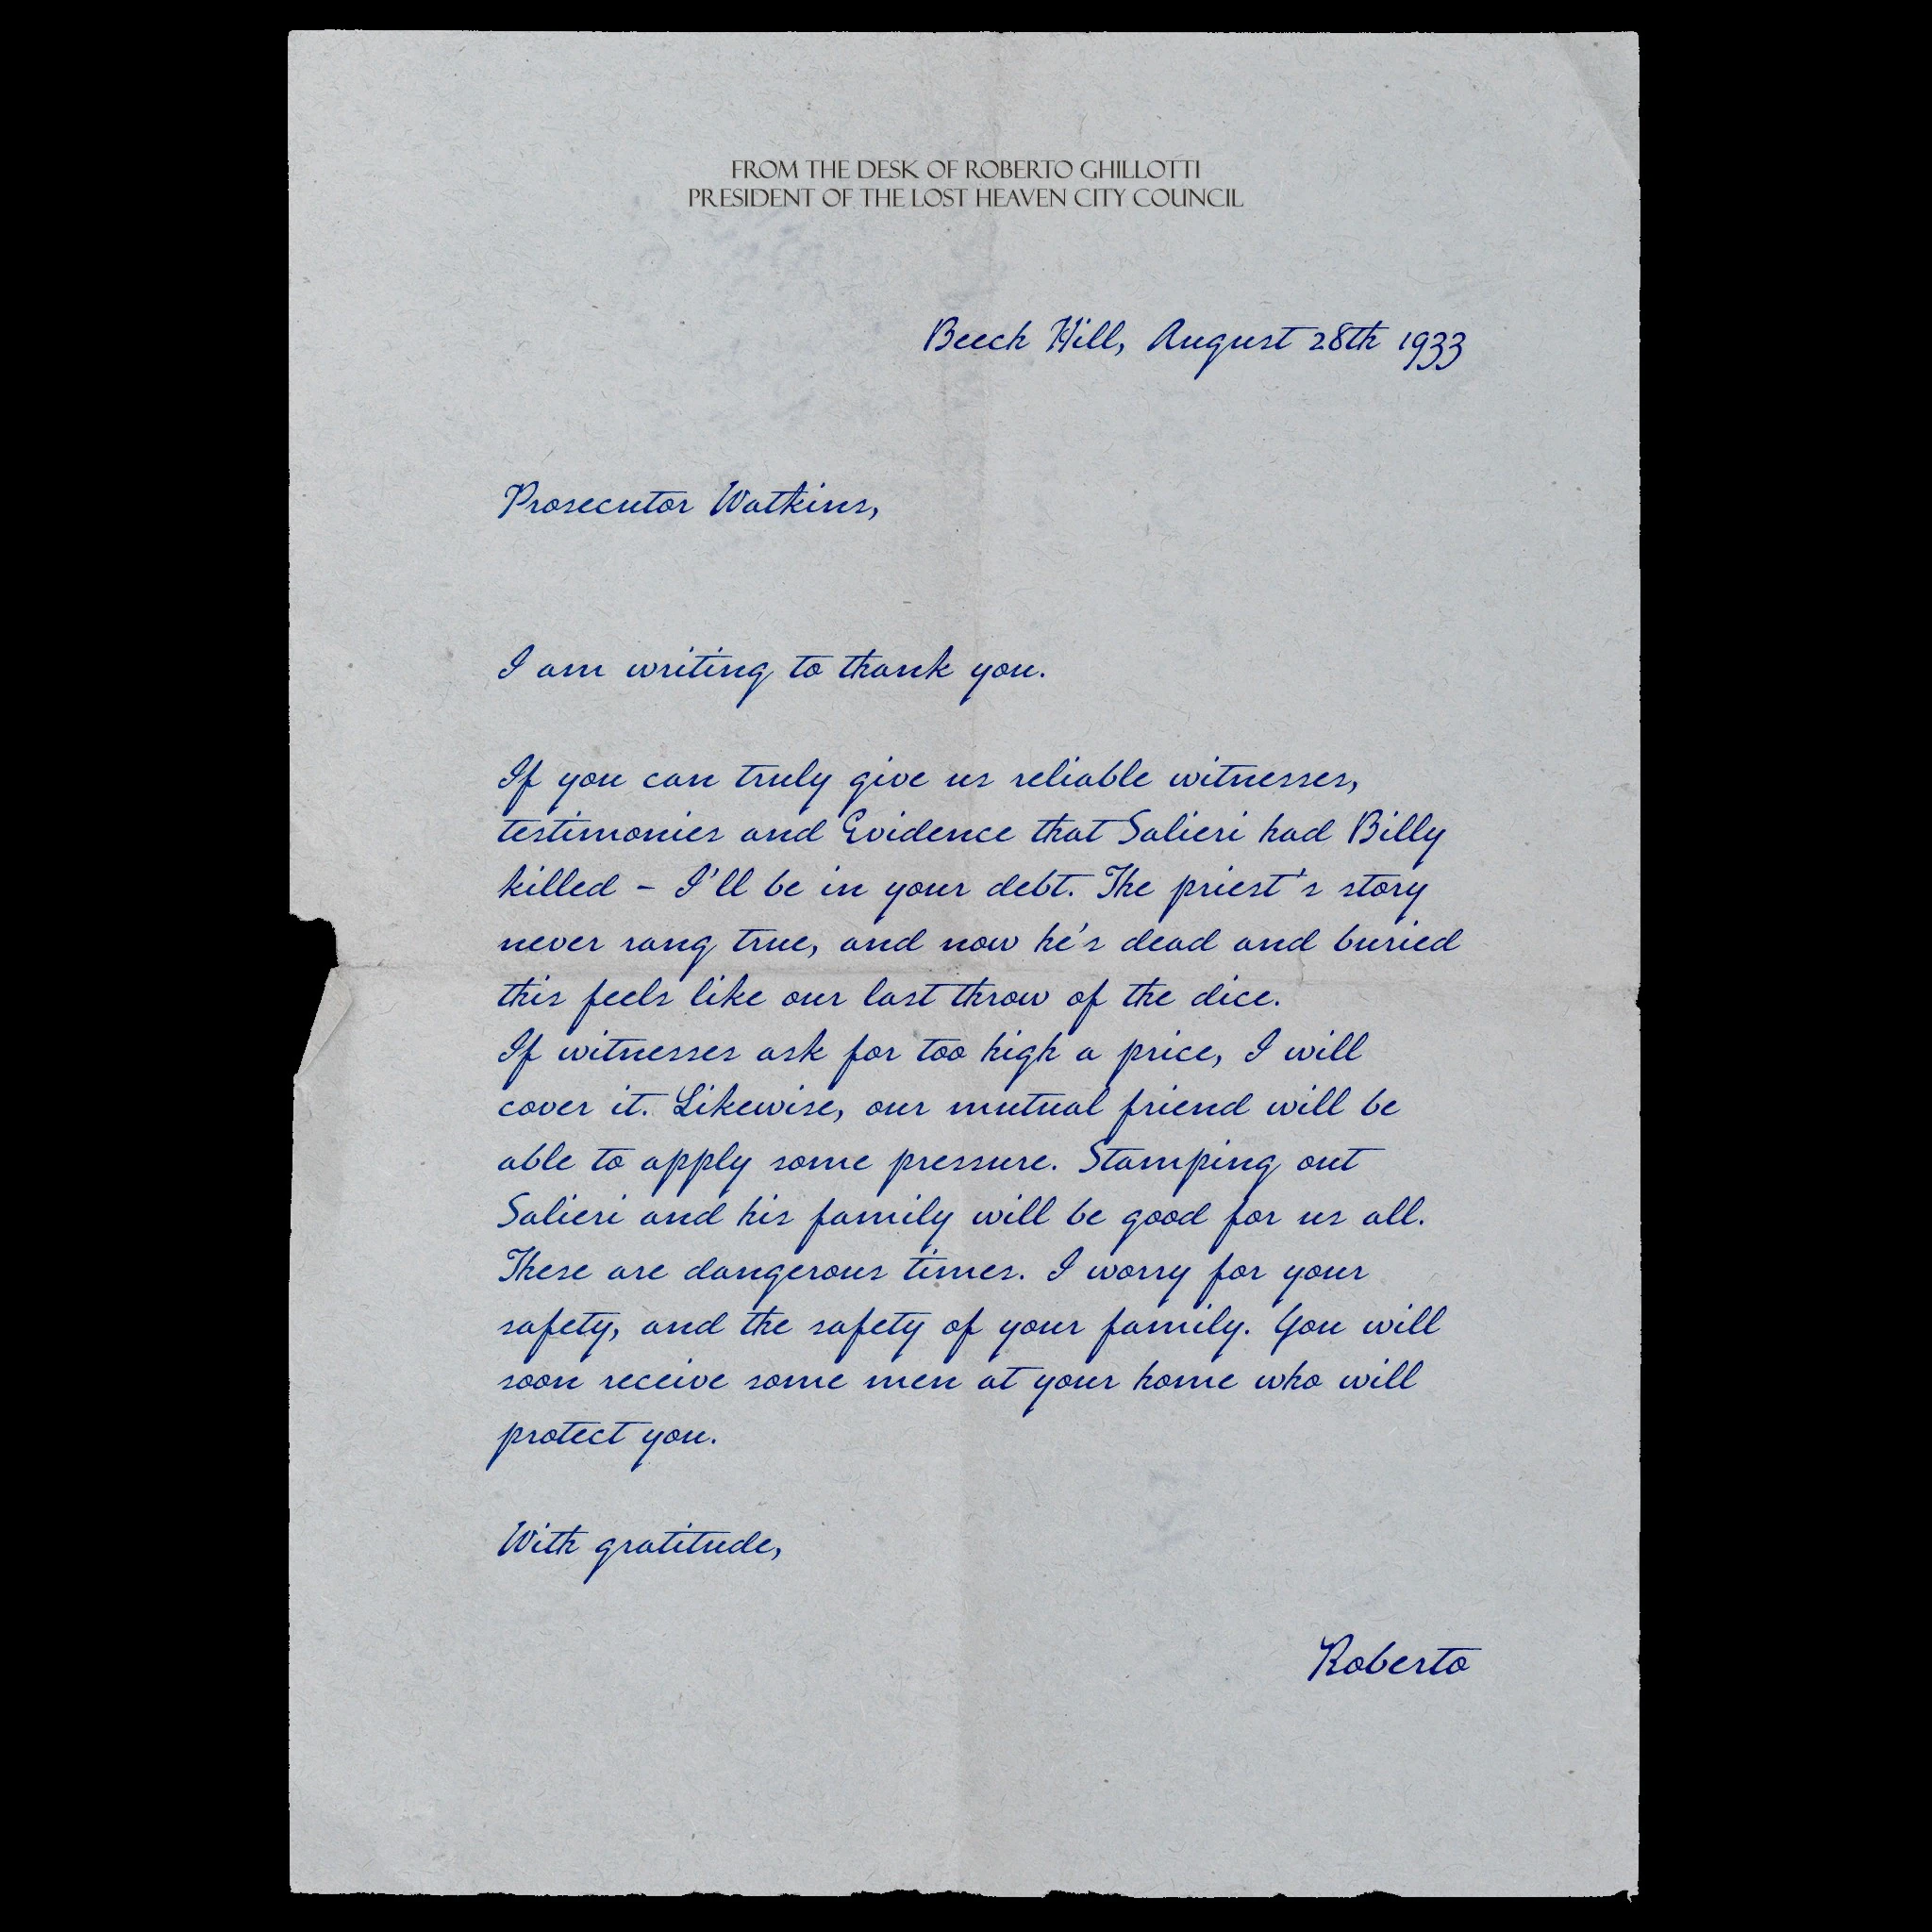 FROM THE DESK OF ROBERTO GHILLOTTI
PRESIDENT OF THE LOST HEAVEN CITY COUNCIL
Beech Hill, August 28th 1933
Prosecutor Watkins,
I am writing to thank you.
If you can truly give us reliable witnesses,
testimonies and Evidence that Salieri had Billy
killed – I'll be in your debt. The priest's story
never rang true, and now he's dead and buried
this feels like our last throw of the dice.
If witnesses ask for too high a price, I will
cover it. Likewise, our mutual friend will be
able to apply some pressure. Stamping out
Salieri and his family will be good for us all.
These are dangerous times. I worry for your
safety, and the safety of your family. You will
soon receive some men at your home who will
protect you.
With gratitude,
Roberto